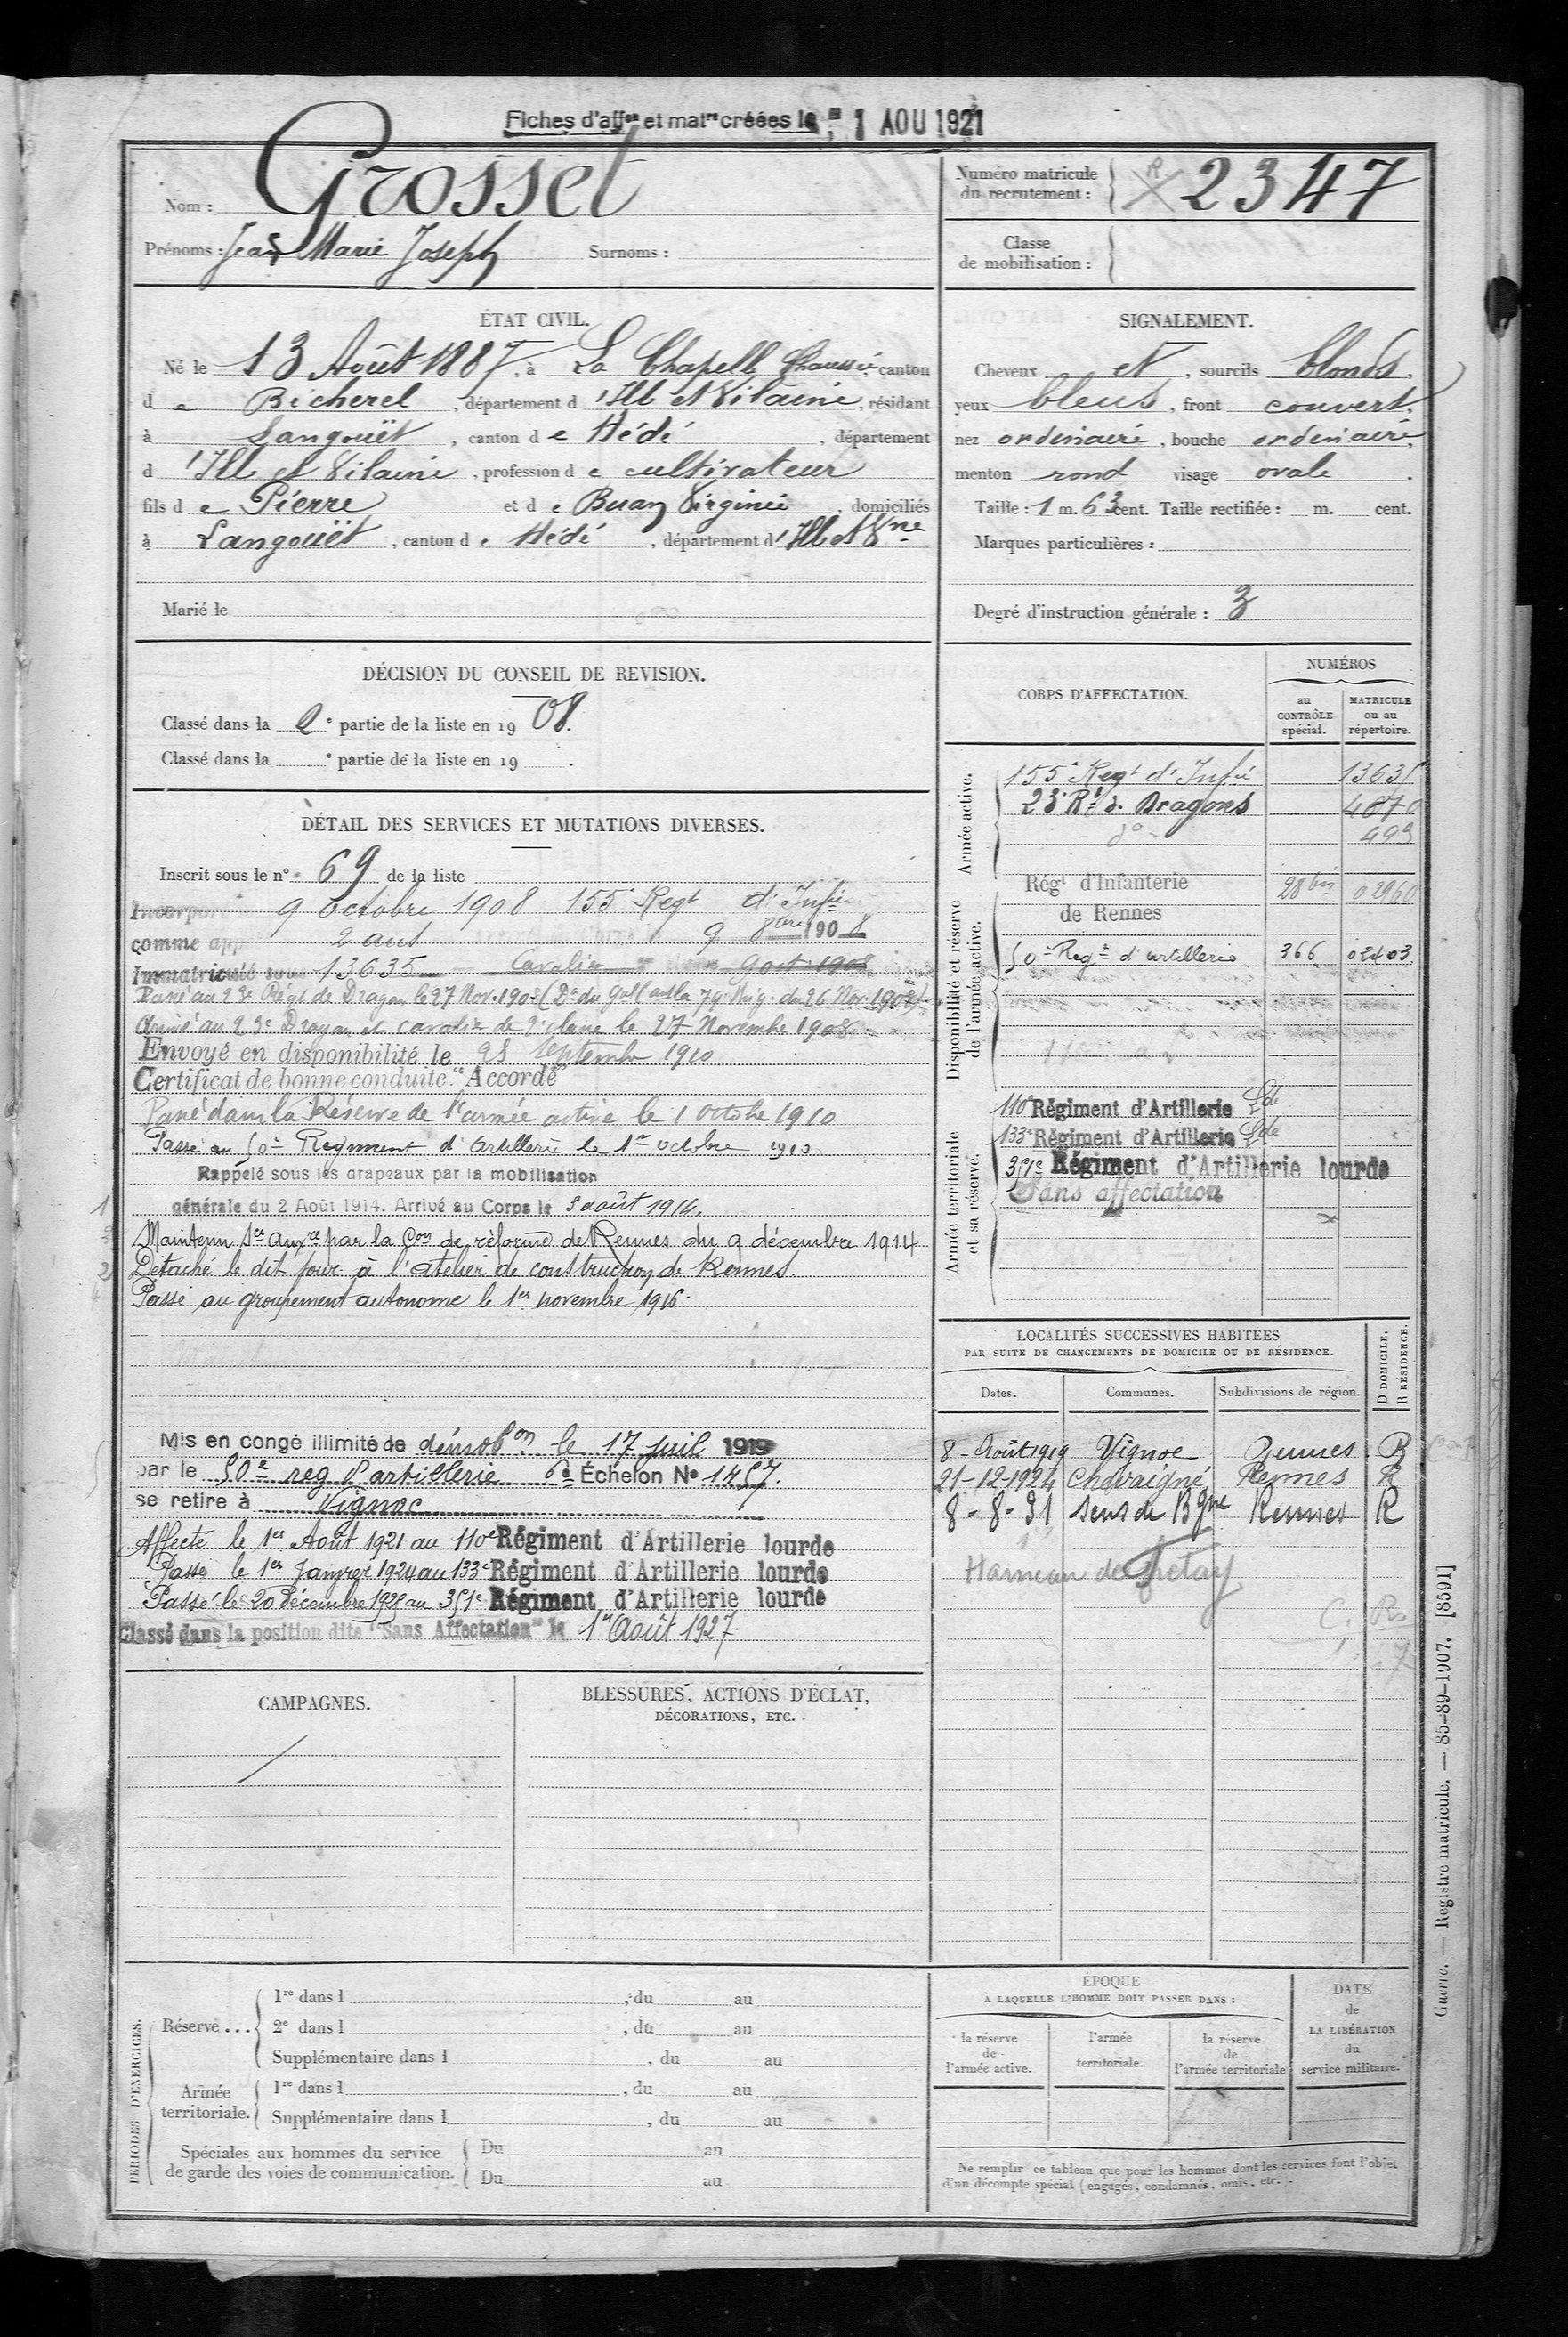 Fiches d'affon et matre créées le 1 AOU 1921
Nom : Grosset
Prénoms : Jean Marie Joseph Surnoms :
Numéro matricule du recrutement : 2347
Classe de mobilisation :
ÉTAT CIVIL.
Né le 13 Août 1887, à La Chapelle Chaussée, canton
de Bécherel, département d'Ille et Vilaine, résidant
à Langouët, canton de Hédé, département
d'Ille et Vilaine, profession de cultivateur
fils de Pierre et de Buan Virginie, domiciliés
à Langouët, canton de Hédé, département d'Ille et Vne
Marié le
SIGNALEMENT.
Cheveux et, sourcils blonds,
yeux bleus, front couvert,
nez ordinaire, bouche ordinaire,
menton rond visage ovale.
Taille : 1 m. 63 cent. Taille rectifiée : m. cent.
Marques particulières :
Degré d'instruction générale : 3
DÉCISION DU CONSEIL DE REVISION.
Classé dans la 2e partie de la liste en 1908.
Classé dans la e partie de la liste en 19 .
DÉTAIL DES SERVICES ET MUTATIONS DIVERSES.
Inscrit sous le n° 69 de la liste
Incorporé 9 octobre 1908 155e Regt d'Infie
comme app 2 ans 9 8bre 1908
Immatriculé sous 13635 Cavalier 9 oct 1908
Passé au 23e Régt de Dragons le 27 Nov. 1908 (Don du Gal Cant la 74e Brig. du 26 Nov. 1908)
Arrivé au 23e Dragons et cavalier de 2e classe le 27 Novembre 1908
Envoyé en disponibilité le 25 septembre 1910
Certificat de bonne conduite "Accordé"
Passé dans la Réserve de l'armée active le 1 Octobre 1910
Passé au 50e Régiment d'Artillerie le 1er octobre 1913
Rappelé sous les drapeaux par la mobilisation
générale du 2 Août 1914. Arrivé au Corps le 3 août 1914.
Maintenu Sce auxre par la Con de réforme de Rennes du 9 décembre 1914
Détaché le dit jour à l'atelier de construction de Rennes.
Passé au groupement autonome le 1er novembre 1916.
Mis en congé illimité de démobon le 17 juil 1919
par le 50e reg d'artillerie 6e Échelon No 1457.
se retire à Vignoc
Affecté le 1er Août 1921 au 110e Régiment d'Artillerie lourde
Passé le 1er Janvier 1924 au 133e Régiment d'Artillerie lourde
Passé le 20 Décembre 1925 au 351e Régiment d'Artillerie lourde
Classé dans la position dite "Sans Affectation" le 1er Août 1927
CORPS D'AFFECTATION.
NUMÉROS
au CONTRÔLE spécial.
MATRICULE ou au répertoire.
Armée active.
155e Regt d'Infie 13635
23e Rt de Dragons 4670
do 493
Disponibilité et réserve de l'armée active.
Régt d'Infanterie de Rennes 28 bis 02960
50e Regt d'artillerie 366 02403
Armée territoriale et sa réserve.
110e Régiment d'Artillerie Lde
133e Régiment d'Artillerie Lde
351e Régiment d'Artillerie lourde
Sans affectation
LOCALITÉS SUCCESSIVES HABITÉES
PAR SUITE DE CHANGEMENTS DE DOMICILE OU DE RÉSIDENCE.
Dates. Communes. Subdivisions de région. D DOMICILE. R RÉSIDENCE.
8 - Août 1919 Vignoc Rennes R
21-12-1924 Chevaigné Rennes R
8-8-31 Sens de Bgne Rennes R
Hameau de
CAMPAGNES.
BLESSURES, ACTIONS D'ÉCLAT,
DÉCORATIONS, ETC.
PÉRIODES D'EXERCICES.
Réserve...
1re dans l , du au
2e dans l , du au
Supplémentaire dans l , du au
Armée territoriale.
1re dans l , du au
Supplémentaire dans l , du au
Spéciales aux hommes du service
de garde des voies de communication.
Du au
Du au
ÉPOQUE
À LAQUELLE L'HOMME DOIT PASSER DANS :
la réserve de l'armée active.
l'armée territoriale.
la réserve de l'armée territoriale
DATE de LA LIBÉRATION du service militaire.
Ne remplir ce tableau que pour les hommes dont les services font l'objet
d'un décompte spécial (engagés, condamnés, omis, etc.
Guerre. — Registre matricule. — 85-89-1907. [8591]